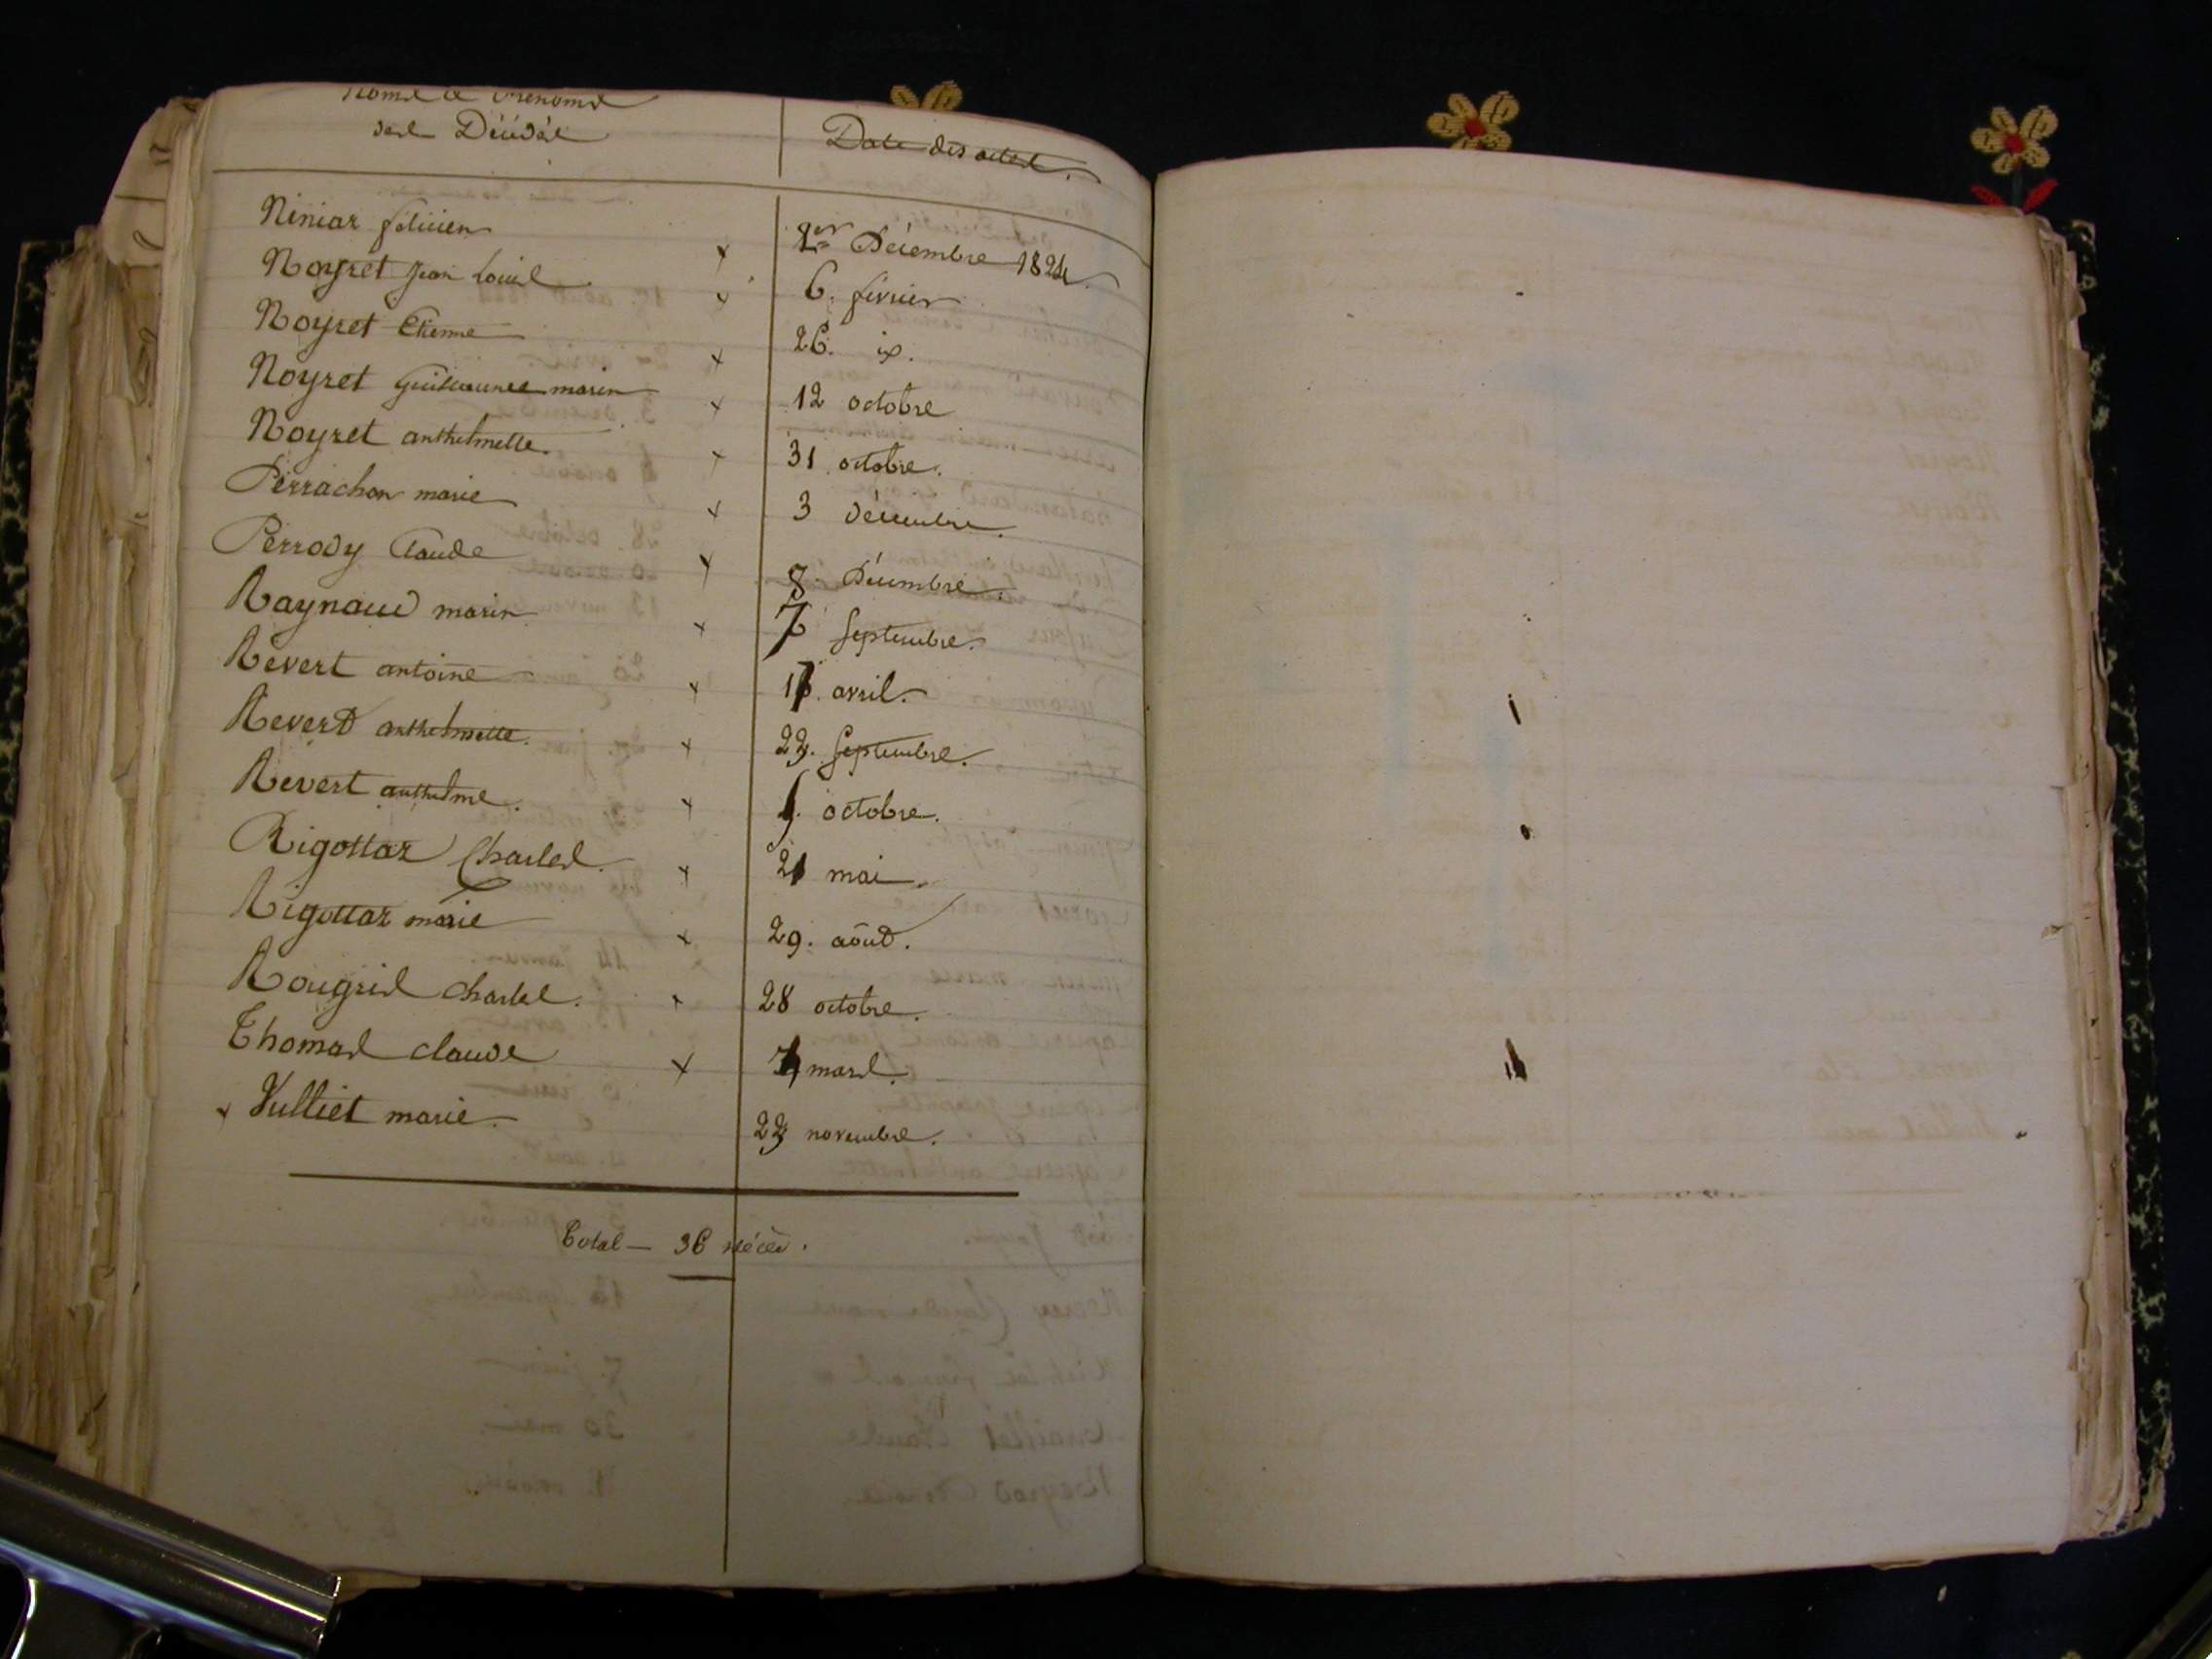 Noms & Prenoms
des Décédés
Date des actes.
Niniar félicien 1er Décembre 1824
Noyret Jean Louis 6. février
Noyret Etienne 26. id.
Noyret Guillaume marin 12 octobre
Noyret anthelmette. 31 octobre.
Perrachon marie 3 décembre.
Perrody Claude 8. Décembre.
Raynaud marin 7 Septembre.
Revert antoine avril.
Reverd anthelmette. 23. Septembre.
Revert anthelme. octobre.
Rigottaz Charles. 21 mai.
Rigottaz marie 29. aôud.
Rougris charles. 28 octobre.
Thomas claude mars.
Vulliet marie. 23 novembre.
Total — 36 décès.